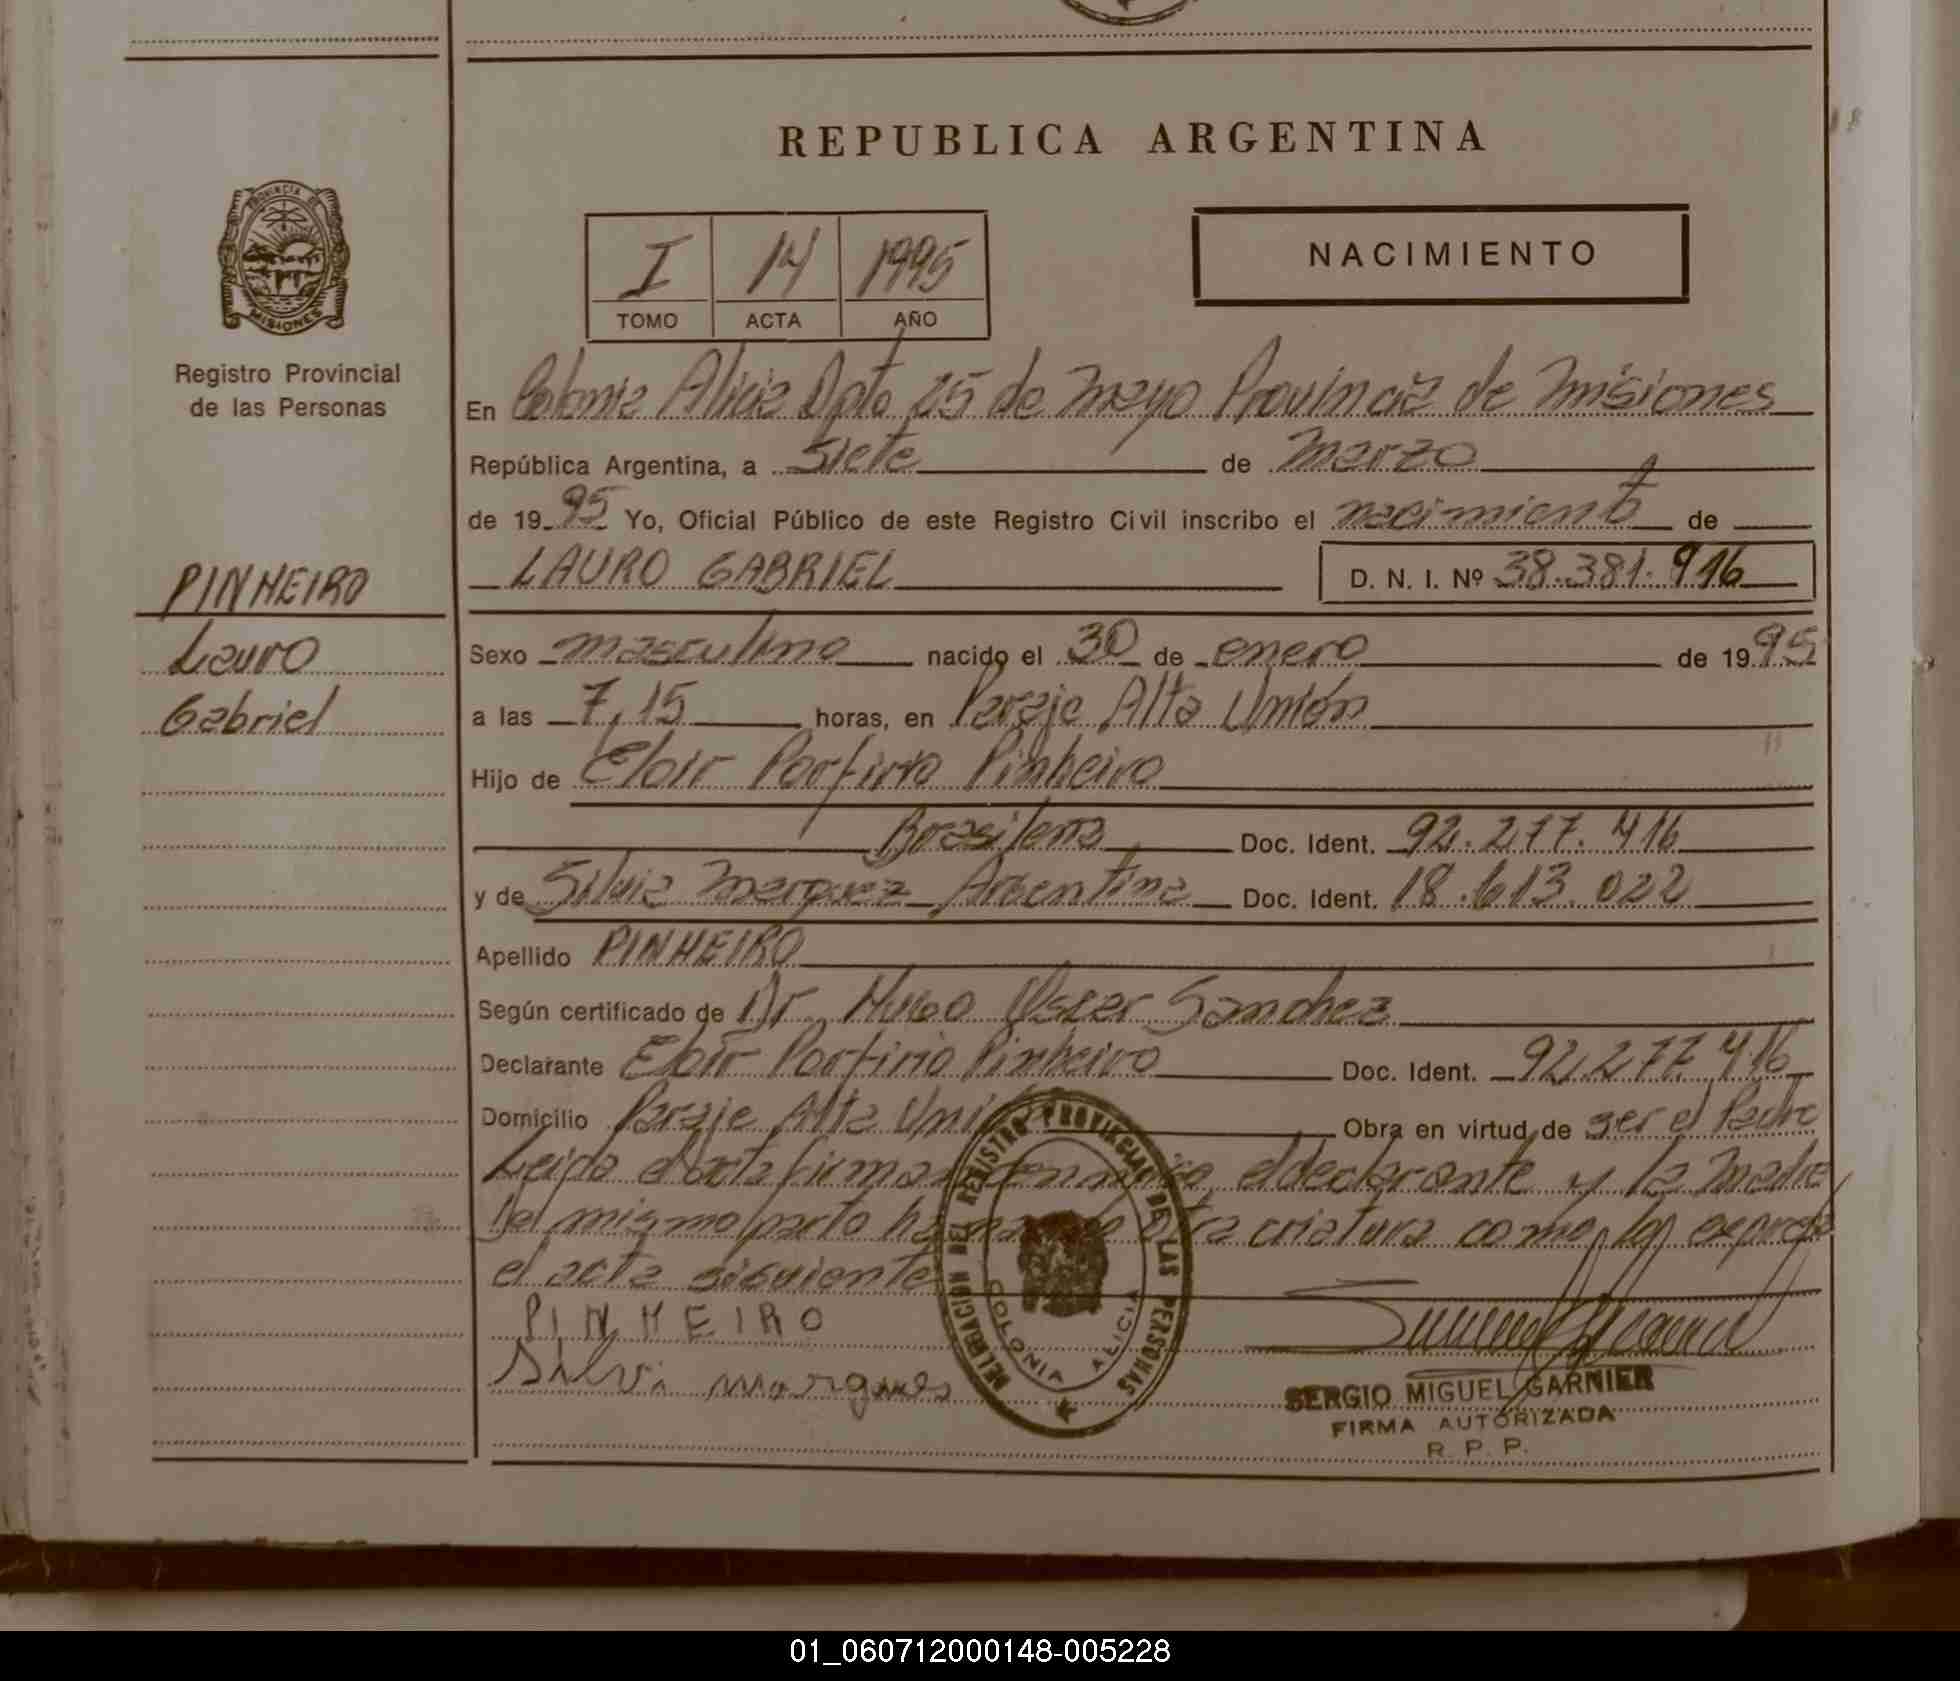 REPUBLICA ARGENTINA
PROVINCIA DE
MISIONES
Registro Provincial
de las Personas
I 14 1995
TOMO ACTA AÑO
NACIMIENTO
En Colonia Alicia Dpto 25 de Mayo Provincia de Misiones
República Argentina, a siete de Marzo
de 1995 Yo, Oficial Público de este Registro Civil inscribo el nacimiento de
LAURO GABRIEL D. N. I. Nº 38.381.916
PINHEIRO
Lauro
Gabriel
Sexo masculino nacido el 30 de enero de 1995
a las 7,15 horas, en Paraje Alta Unión
Hijo de Eloir Porfirio Pinheiro
Brasilera Doc. Ident. 92.277.416
y de Silvia Marquez Argentina Doc. Ident. 18.613.022
Apellido PINHEIRO
Según certificado de Dr. Hugo Oscar Sanchez
Declarante Eloir Porfirio Pinheiro Doc. Ident. 92.277.416
Domicilio Paraje Alta Obra en virtud de ser el Padre
Leida el acta firman el declarante y la Madre
del mismo parto ha otra criatura como lo expresa
el acta siguiente
PINHEIRO
Silvi marques
DELEGACION DEL REGISTRO PROVINCIAL DE LAS PERSONAS
COLONIA ALICIA
SERGIO MIGUEL GARNIER
FIRMA AUTORIZADA
R. P. P.
01_060712000148-005228